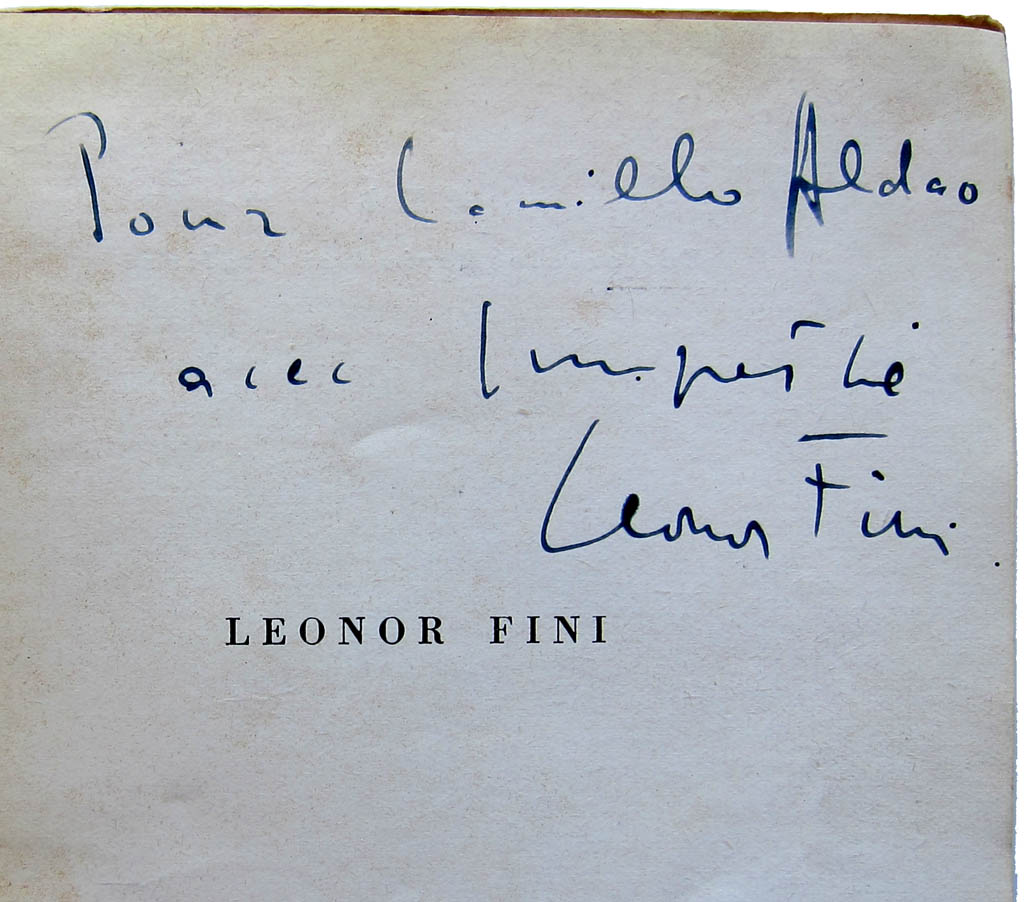 Pour Camillo Aldao
avec sympathie
Leonor Fini
LEONOR FINI